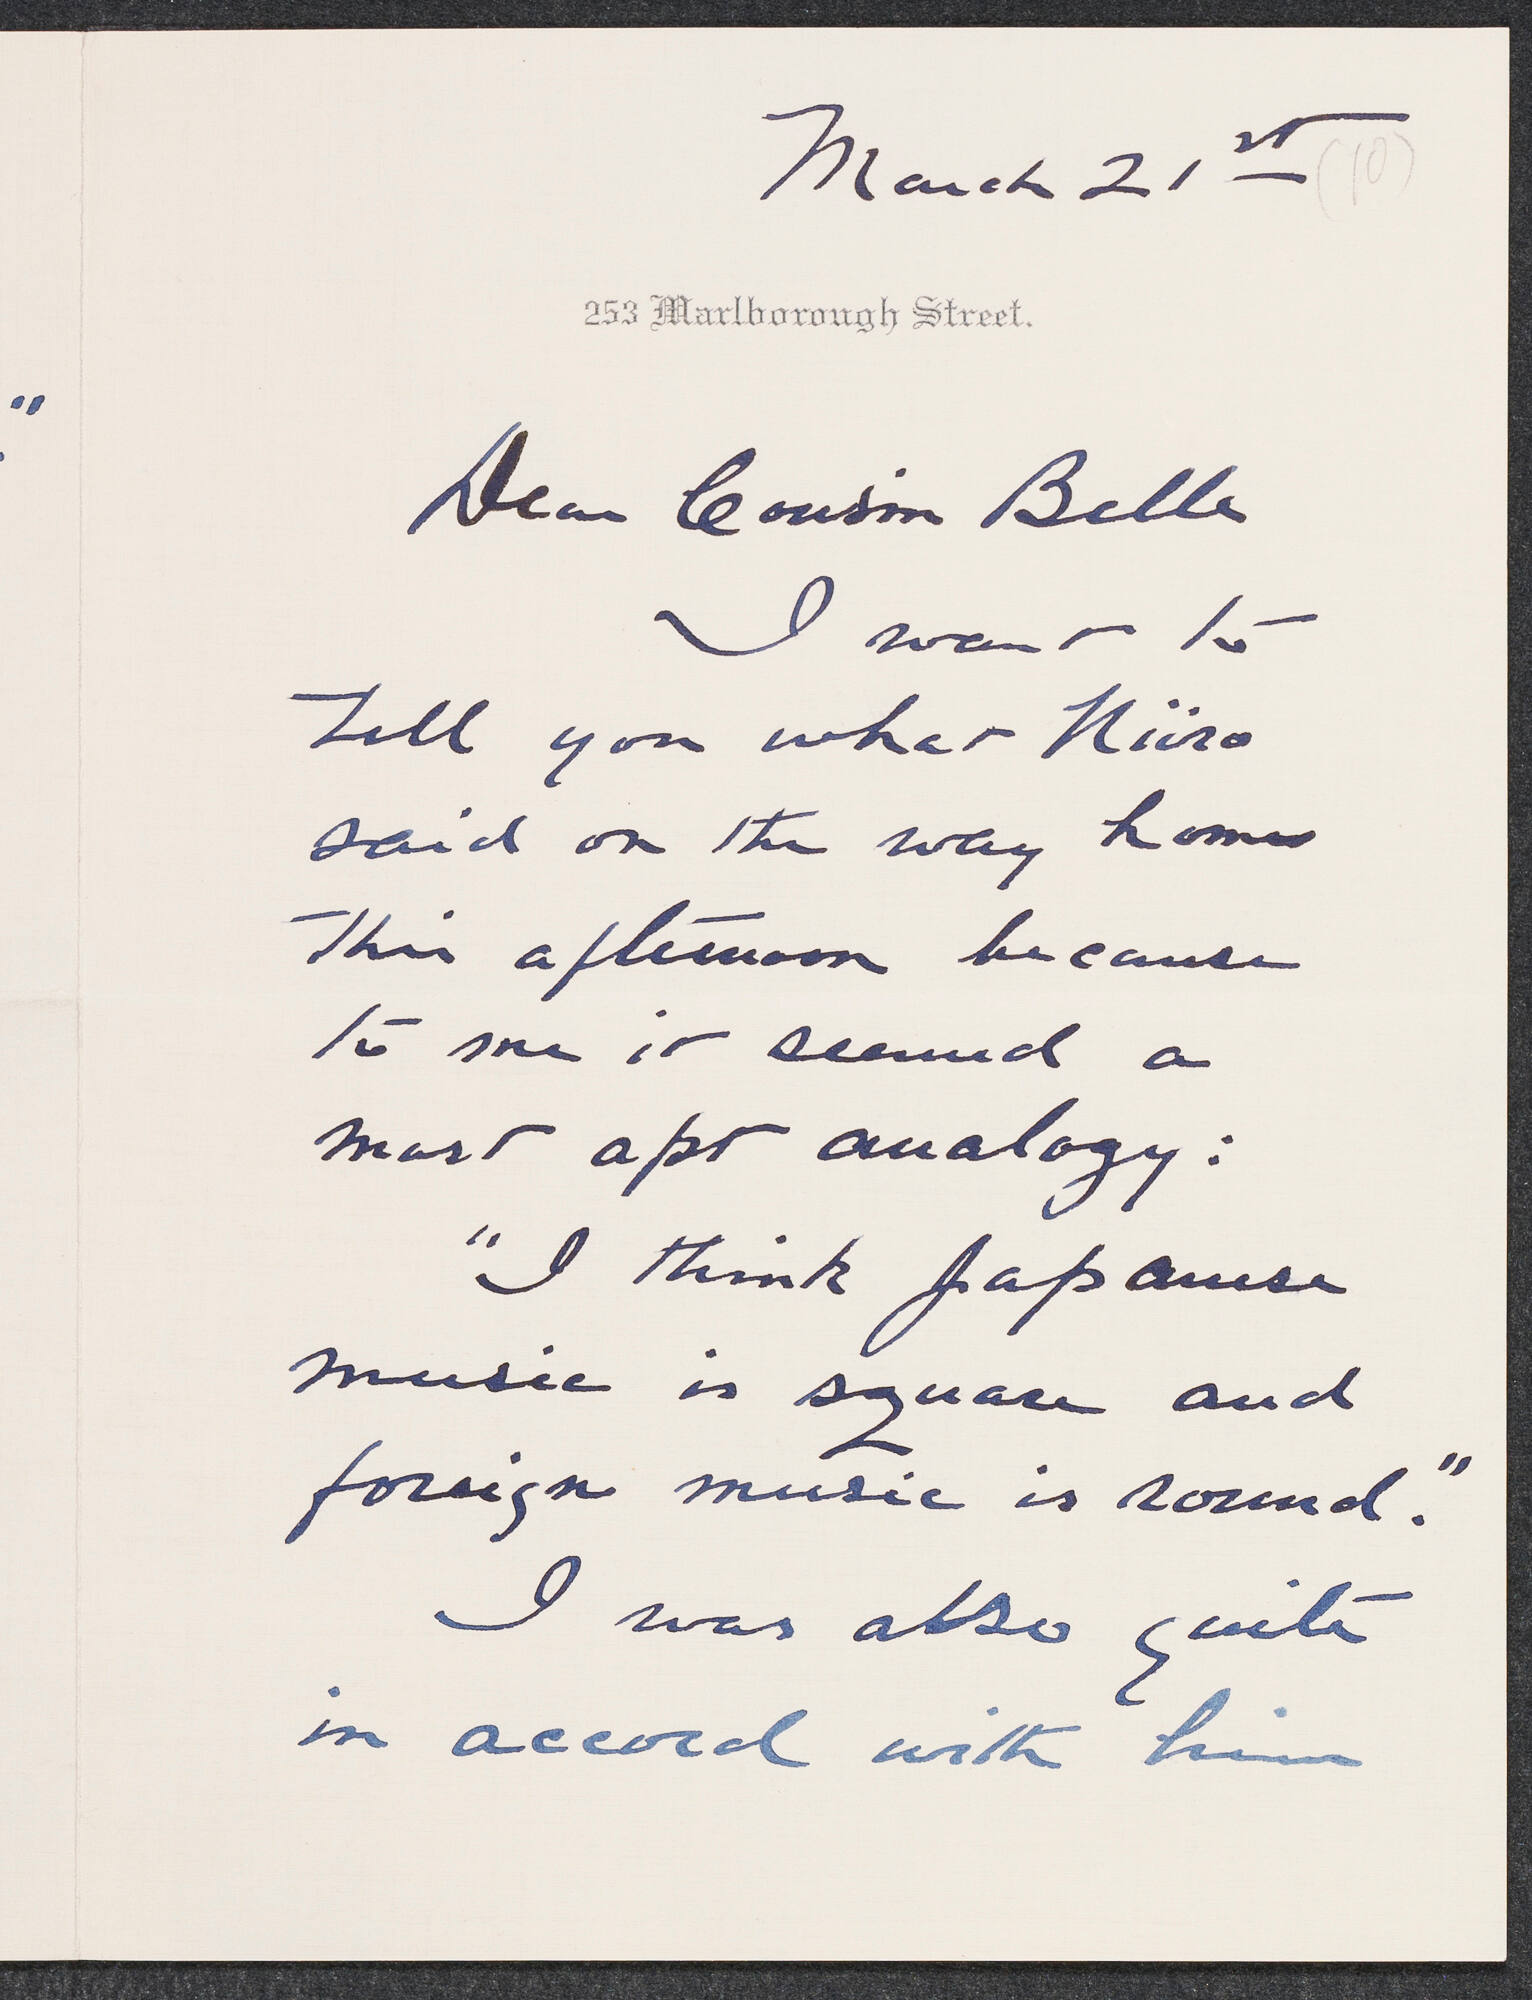 March 21st (10)
253 Marlborough Street.
."
Dear Cousin Belle
I want to
tell you what Niiro
said on the way home
this afternoon because
to me it seemed a
most apt analogy:
"I think Japanese
music is square and
foreign music is round."
I was also quite
in accord with him